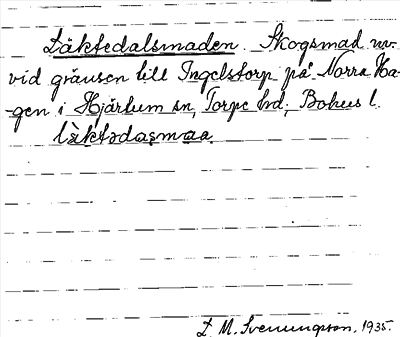 Läktedalsmaden. Skogsmad nv.
vid gränsen till Ingelstorp på Norra Ha-
-gen i Hjärtum sn, Torpe hd; Bohus l.
làktədaṣmaa.
L. M. Svenungsson, 1935.